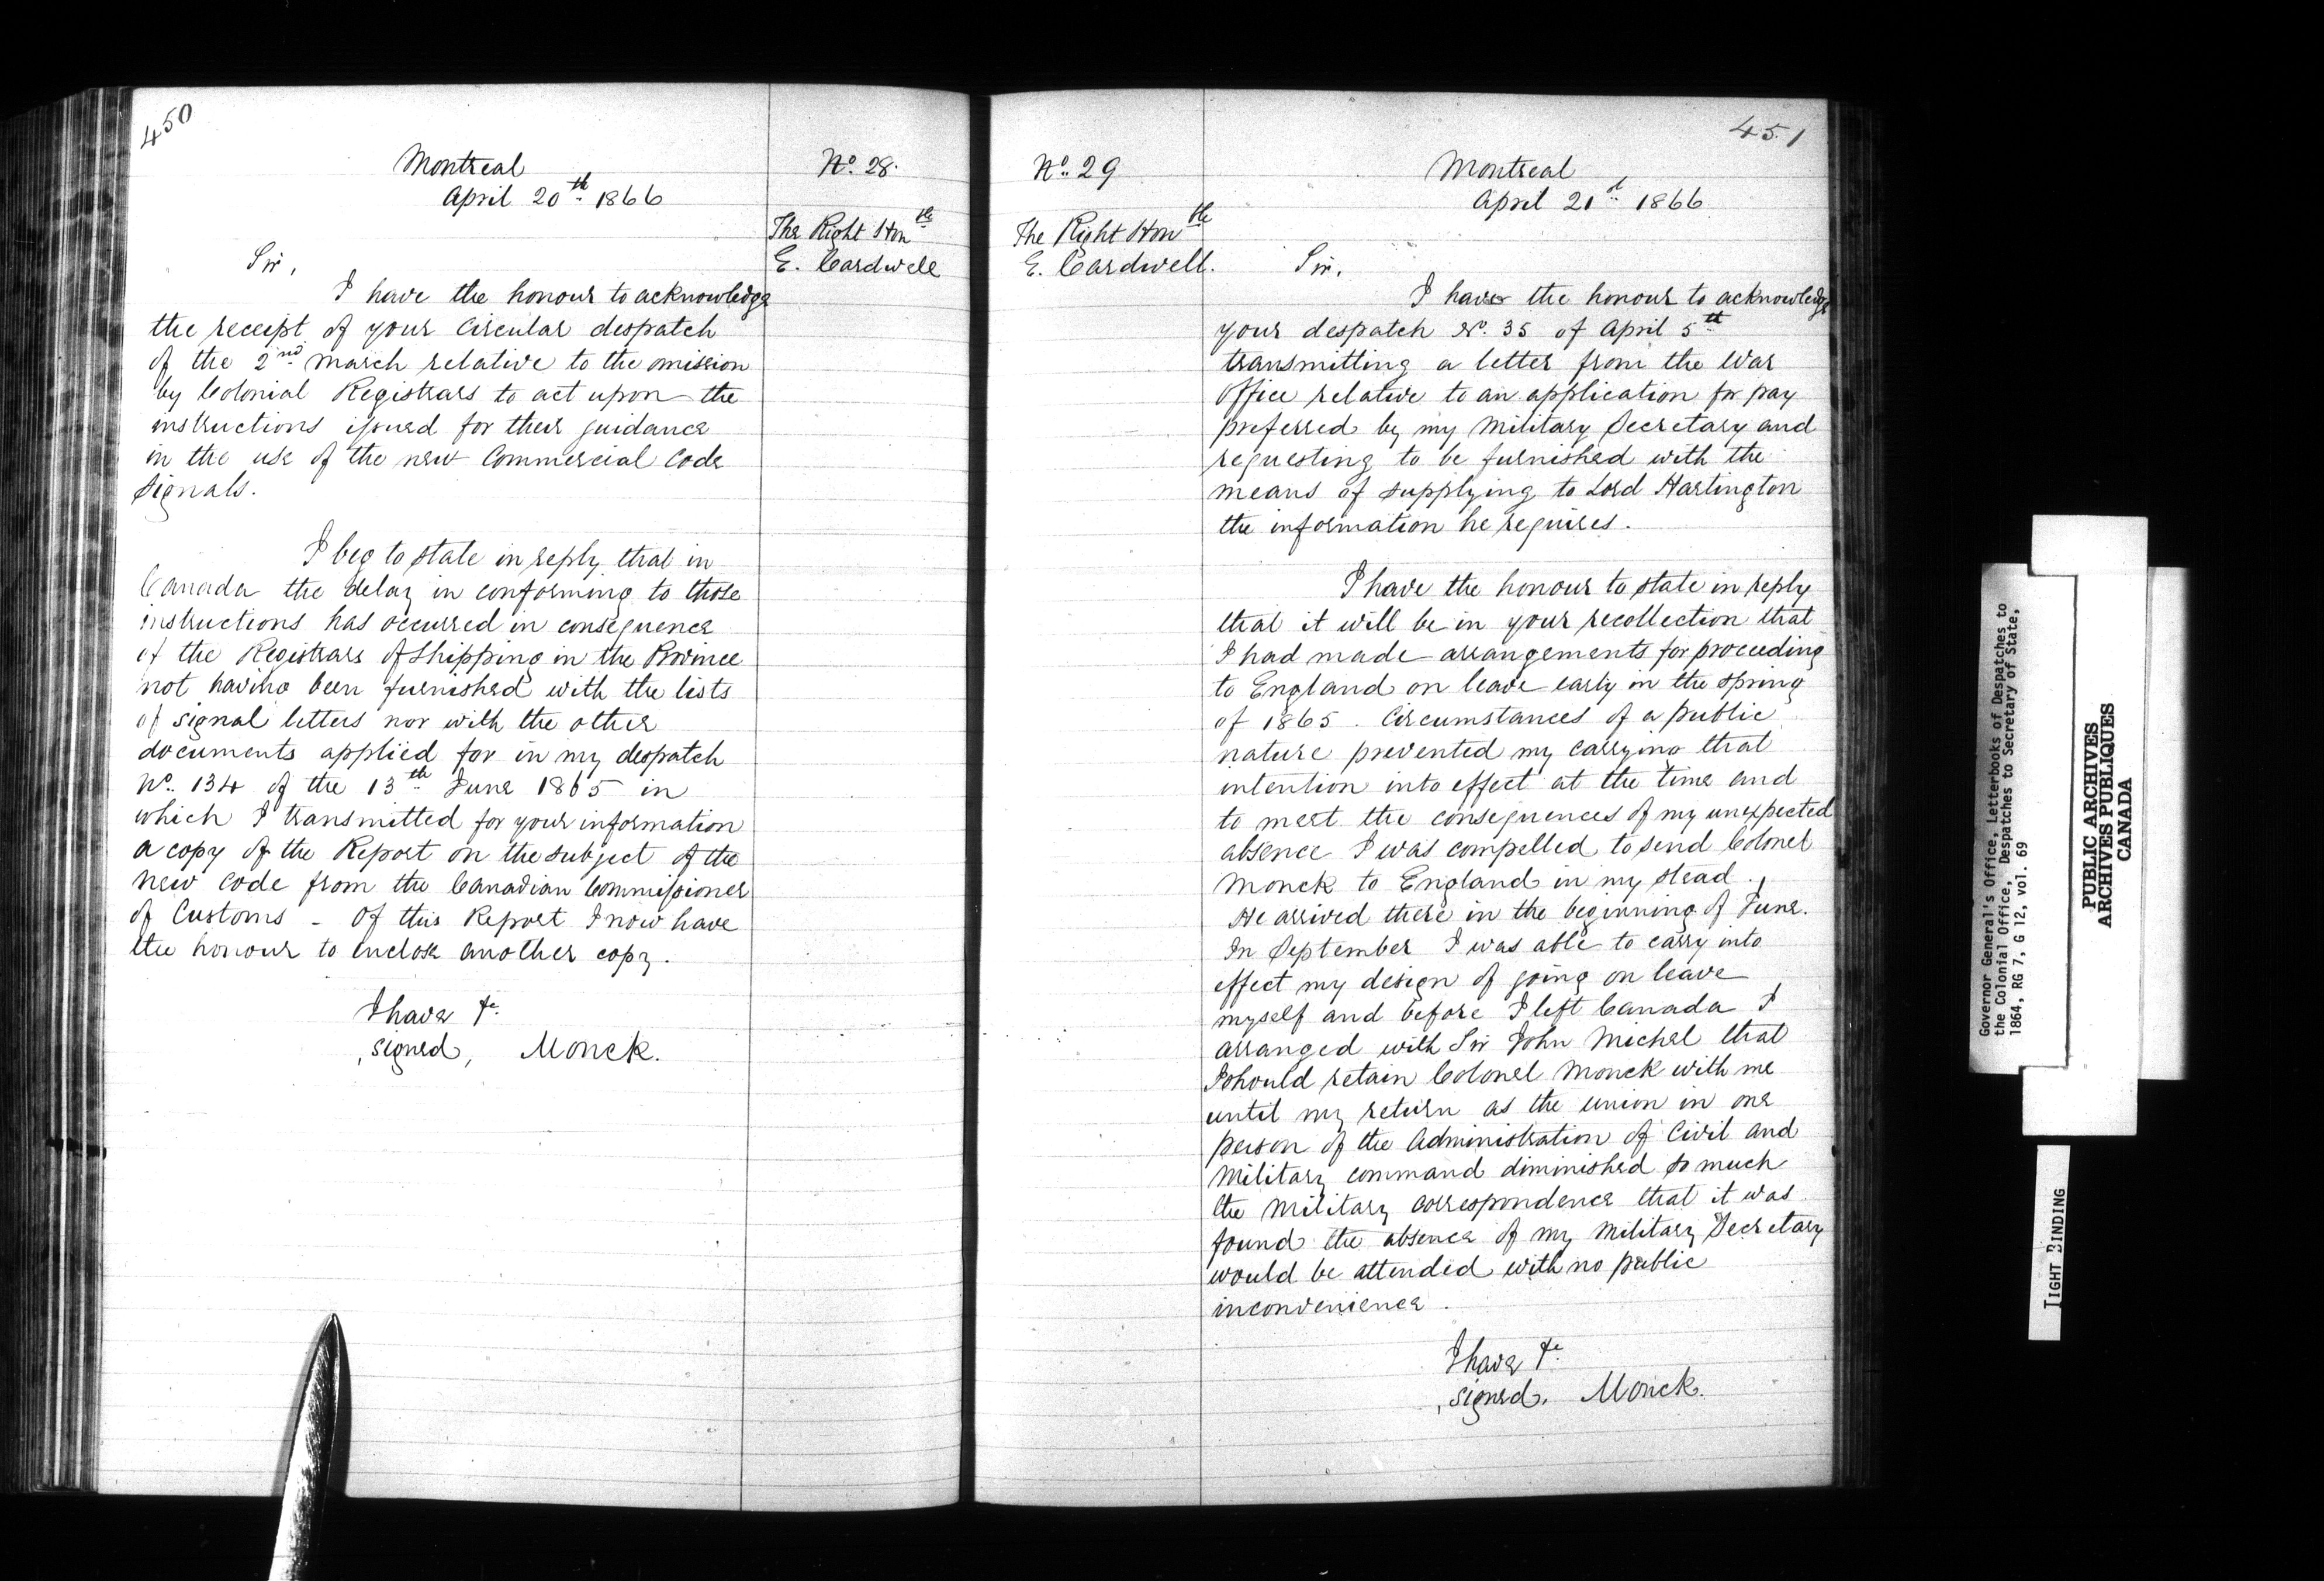 450
Montreal
April 20th 1866
No. 28.
The Right Honble
E. Cardwell
Sir,
I have the honour to acknowledge
the receipt of your Circular despatch
of the 2nd March relative to the omission
by Colonial Registrars to act upon the
instructions issued for their guidance
in the use of the new Commercial Code
Signals.
I beg to state in reply that in
Canada the delay in conforming to those
instructions has occurred in consequence
of the Registrars of Shipping in the Province
not having been furnished with the lists
of signal letters nor with the other
documents applied for in my despatch
No. 134 of the 13th June 1865 in
which I transmitted for your information
a copy of the Report on the subject of the
new Code from the Canadian Commissioner
of Customs - Of this Report I now have
the honour to enclose another copy.
I have &c.
signed, Monck.
451
No. 29
Montreal
April 21st 1866
The Right Honble
E. Cardwell.
Sir,
I have the honour to acknowledge
your despatch No. 35 of April 5th
transmitting a letter from the War
Office relative to an application for pay
preferred by my Military Secretary and
requesting to be furnished with the
means of supplying to Lord Hartington
the information he requires.
I have the honour to state in reply
that it will be in your recollection that
I had made arrangements for proceeding
to England on leave early in the spring
of 1865. Circumstances of a public
nature prevented my carrying that
intention into effect at the time and
to meet the consequences of my unexpected
absence I was compelled to send Colonel
Monck to England in my stead.
He arrived there in the beginning of June.
In September I was able to carry into
effect my design of going on leave
myself and before I left Canada I
arranged with Sir John Michel that
I should retain Colonel Monck with me
until my return as the union in one
person of the Administration of Civil and
Military command diminished so much
the Military correspondence that it was
found the absence of my Military Secretary
would be attended with no public
inconvenience.
I have &c.
signed, Monck.
Governor General's Office, Letterbooks of Despatches to
the Colonial Office, Despatches to Secretary of State,
1864, RG 7, G 12, vol. 69
PUBLIC ARCHIVES
ARCHIVES PUBLIQUES
CANADA
TIGHT BINDING